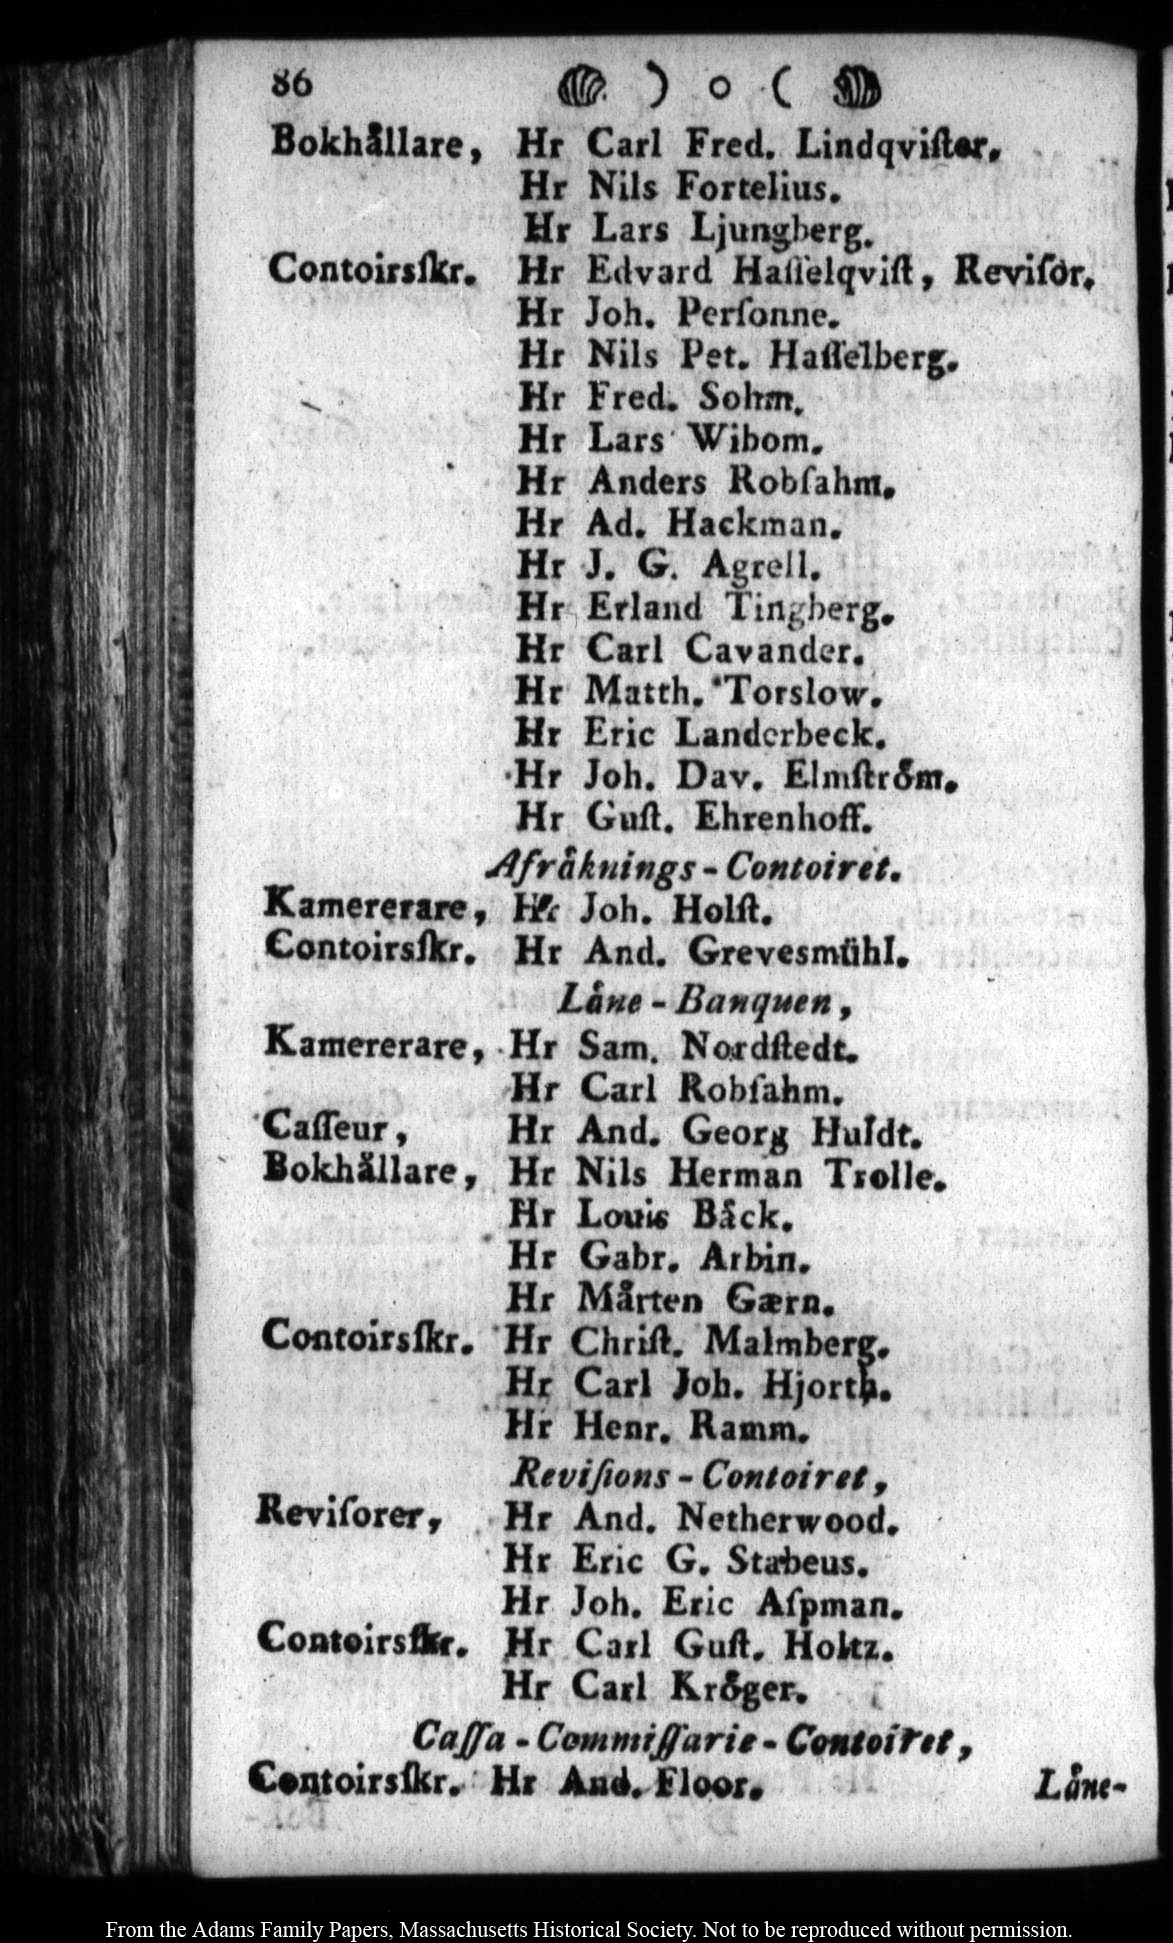 86 ) o (
Bokhållare, Hr Carl Fred. Lindqvister.
Hr Nils Fortelius.
Hr Lars Ljungberg.
Contoirsſkr. Hr Edvard Haſſelqviſt, Reviſor.
Hr Joh. Perſonne.
Hr Nils Pet. Haſſelberg.
Hr Fred. Sohm.
Hr Lars Wibom.
Hr Anders Robſahm.
Hr Ad. Hackman.
Hr J. G. Agrell.
Hr Erland Tingberg.
Hr Carl Cavander.
Hr Matth. Torslow.
Hr Eric Landerbeck.
Hr Joh. Dav. Elmſtrôm.
Hr Guſt. Ehrenhoff.
Afråknings-Contoiret.
Kamererare, Hr Joh. Holſt.
Contoirsſkr. Hr And. Grevesmühl.
Låne-Banquen,
Kamererare, Hr Sam. Nordſtedt.
Hr Carl Robſahm.
Caſſeur, Hr And. Georg Huldt.
Bokhållare, Hr Nils Herman Trolle.
Hr Louis Båck.
Hr Gabr. Arbin.
Hr Mårten Gærn.
Contoirsſkr. Hr Chriſt. Malmberg.
Hr Carl Joh. Hjorth.
Hr Henr. Ramm.
Reviſions-Contoiret,
Reviſorer, Hr And. Netherwood.
Hr Eric G. Stabeus.
Hr Joh. Eric Aſpman.
Contoirsſkr. Hr Carl Guſt. Holtz.
Hr Carl Krôger.
Caſſa-Commiſſarie-Contoiret,
Contoirsſkr. Hr And. Floor.
Låne-
From the Adams Family Papers, Massachusetts Historical Society. Not to be reproduced without permission.